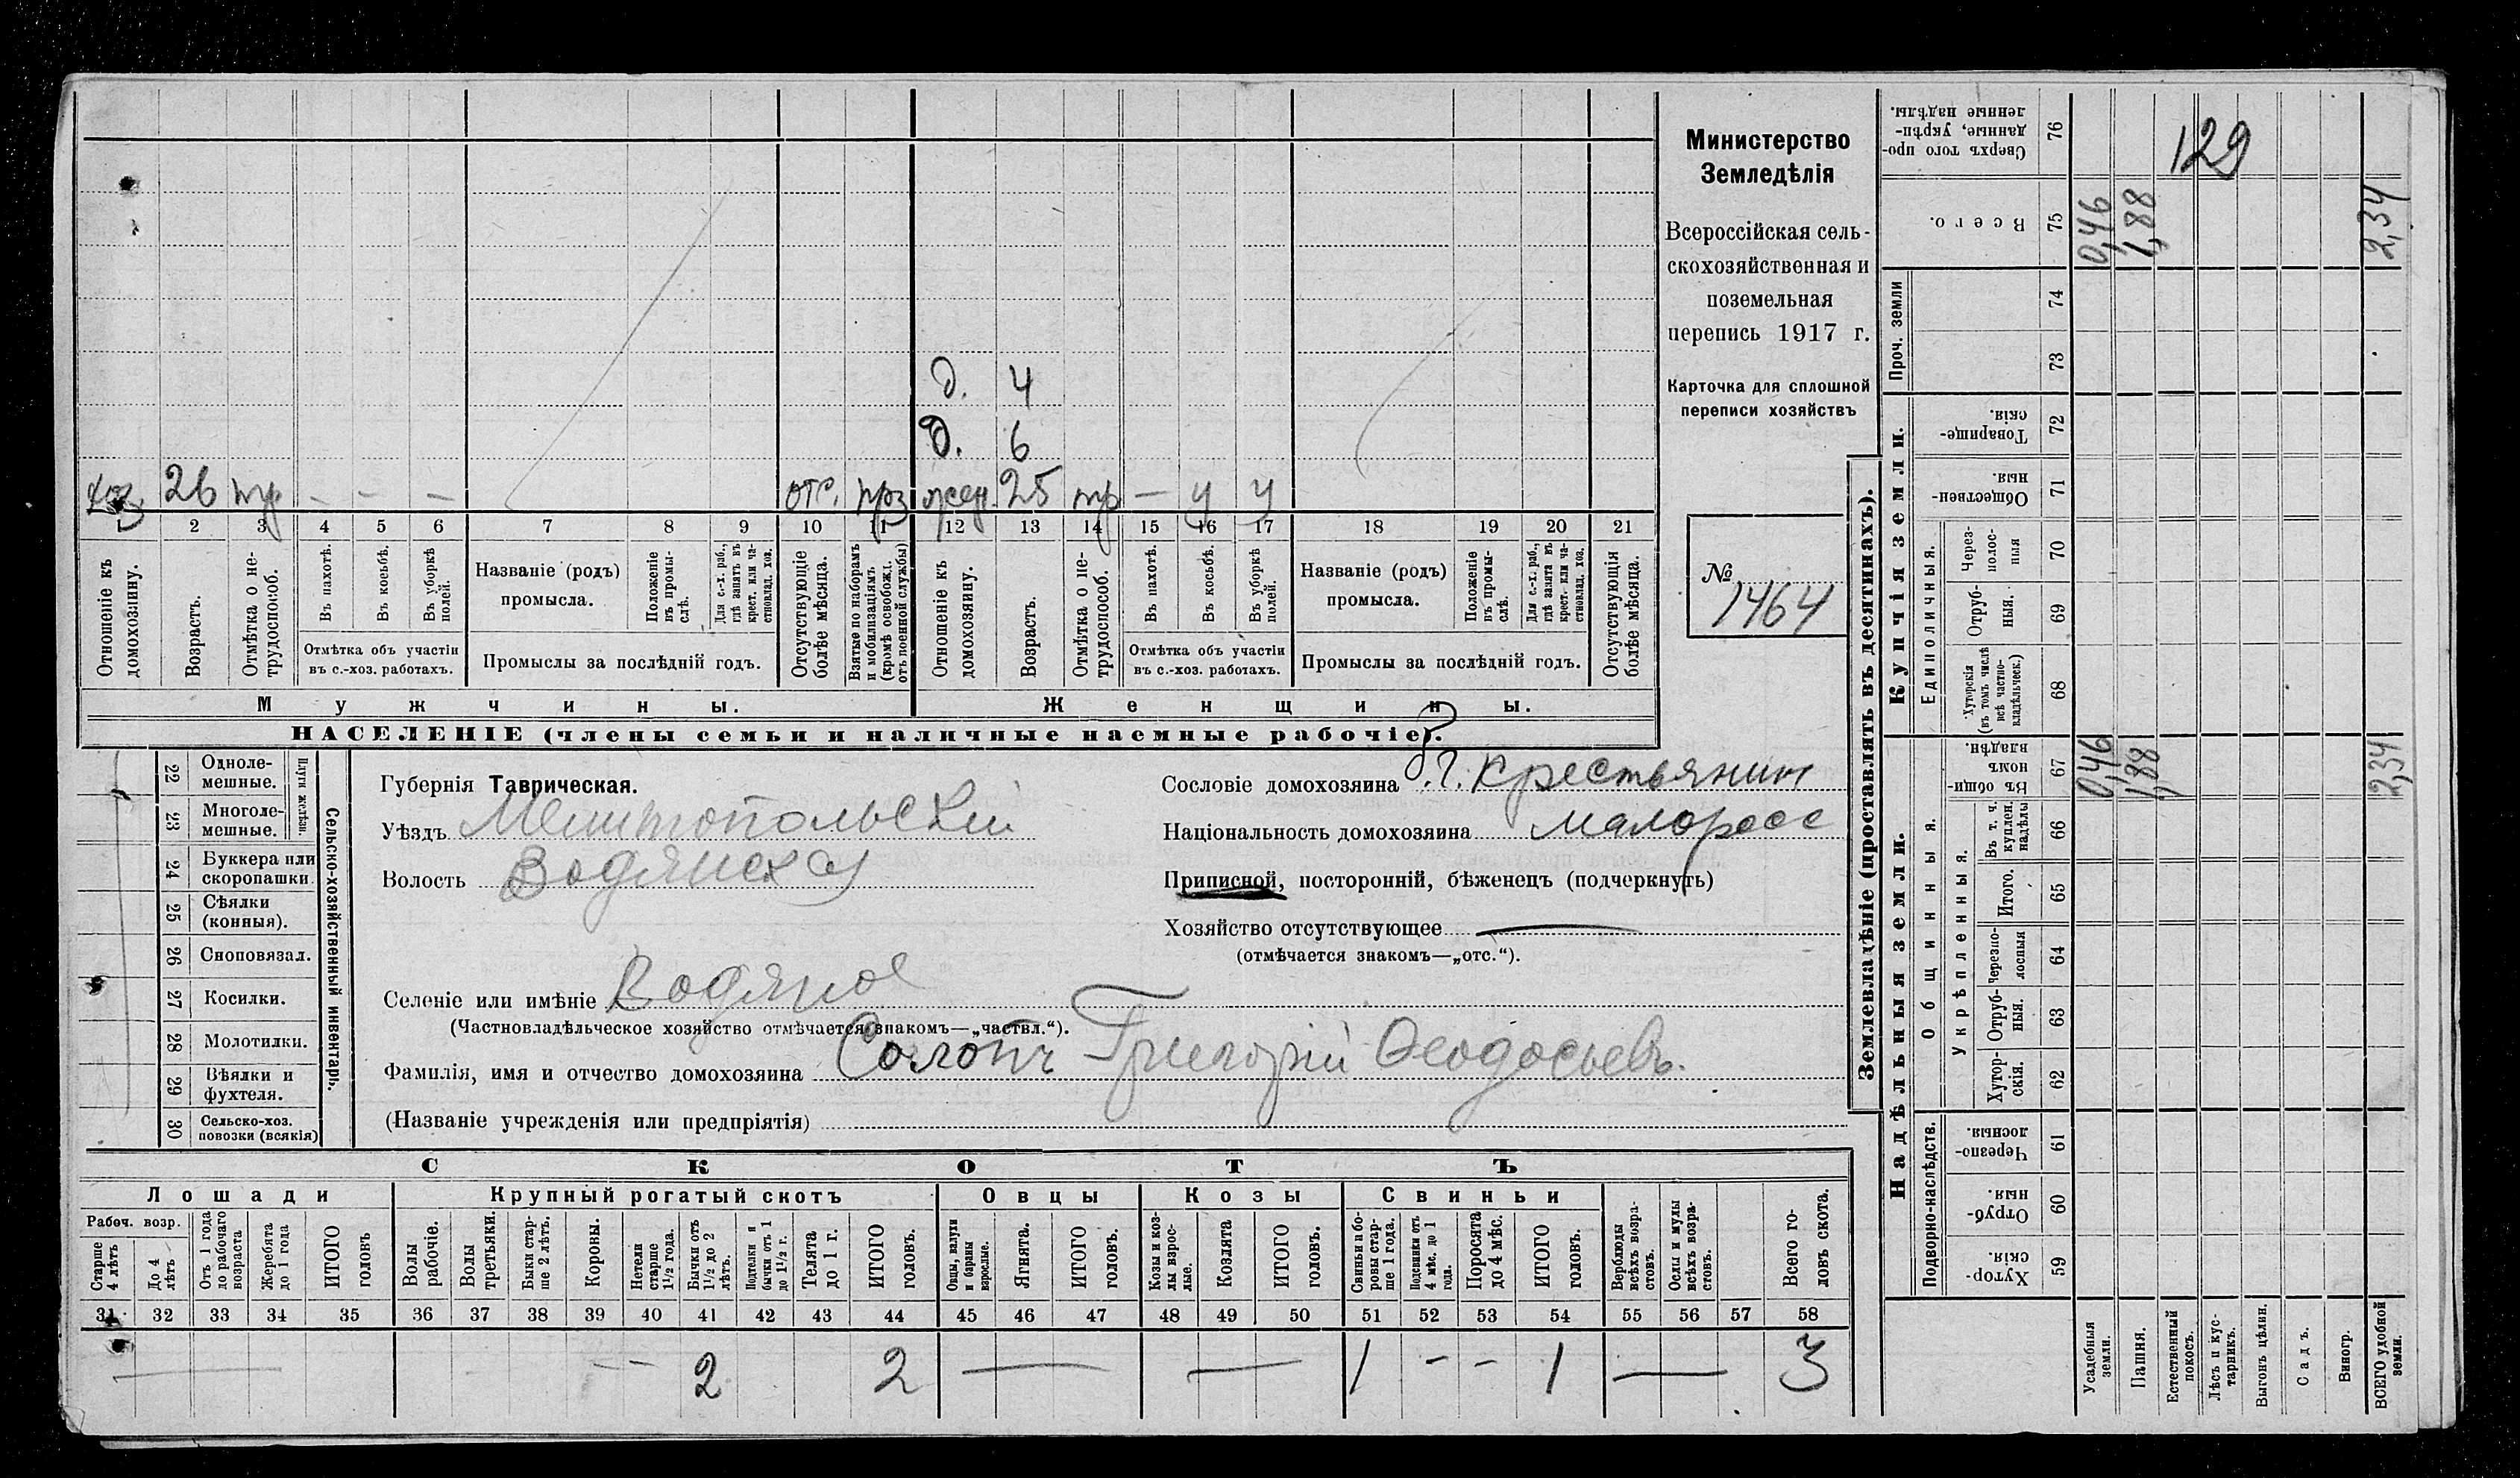 д. 4
д. 6
хоз. 26 тр — — — отс. прз жен. 25 тр — у у
1 2 3 4 5 6 7 8 9 10 11 12 13 14 15 16 17 18 19 20 21
Отношеніе къ домохозяину.
Возрастъ.
Отмѣтка о не-трудоспособ.
Въ пахотѣ.
Въ косьбѣ.
Въ уборкѣ полей.
Отмѣтка объ участіи
въ с.-хоз. работахъ.
Названіе (родъ)
промысла.
Положеніе въ промы-слѣ.
Для с.-х. раб., гдѣ занятъ въ крест. или ча-стновлад. хоз.
Промыслы за послѣдній годъ.
Отсутствующіе болѣе мѣсяца.
Взятые по наборамъ и мобилизаціямъ (кромѣ освобожд. отъ военной службы)
Отношеніе къ домохозяину.
Возрастъ.
Отмѣтка о не-трудоспособ.
Въ пахотѣ.
Въ косьбѣ.
Въ уборкѣ полей.
Отмѣтка объ участіи
въ с.-хоз. работахъ.
Названіе (родъ)
промысла.
Положеніе въ промы-слѣ.
Для с.-х. раб., гдѣ занята въ крест. или ча-стновлад. хоз.
Промыслы за послѣдній годъ.
Отсутствующія болѣе мѣсяца.
Мужчины. Женщины.
НАСЕЛЕНІЕ (члены семьи и наличные наемные рабочіе).
Министерство
Земледѣлія
Всероссійская сель-
скохозяйственная и
поземельная
перепись 1917 г.
Карточка для сплошной
переписи хозяйствъ
№
1464
22 Одноле-мешные.
23 Многоле-мешные.
Плуги желѣзн.
24 Буккера или скоропашки.
25 Сѣялки (конныя).
26 Сноповязал.
27 Косилки.
28 Молотилки.
29 Вѣялки и фухтеля.
30 Сельско-хоз. повозки (всякія)
Сельско-хозяйственный инвентарь.
Губернія Таврическая.
Уѣздъ Мелитопольскій
Волость Водянская
Селеніе или имѣніе Водяно
(Частновладѣльческое хозяйство отмѣчается знакомъ—„частвл.“).
Фамилія, имя и отчество домохозяина Солопъ Григорій Ѳеодосьевъ.
(Названіе учрежденія или предпріятія)
Сословіе домохозяина крестьянин
Національность домохозяина малоросс
Приписной, посторонній, бѣженецъ (подчеркнуть)
Хозяйство отсутствующее —
(отмѣчается знакомъ—„отс.“).
СКОТЪ
Лошади Крупный рогатый скотъ Овцы Козы Свиньи
Рабоч. возр.
Старше 4 лѣтъ
До 4 лѣтъ
Отъ 1 года до рабочаго возраста
Жеребята до 1 года
ИТОГО головъ
Волы рабочіе.
Волы третьяки.
Быки стар-ше 2 лѣтъ.
Коровы.
Нетели старше 1½ года.
Бычки отъ 1½ до 2 лѣтъ.
Подтелки и бычки отъ 1 до 1½ г.
Телята до 1 г.
ИТОГО головъ.
Овцы, валухи и бараны взрослые.
Ягнята.
ИТОГО головъ.
Козы и коз-лы взрос-лые.
Козлята
ИТОГО головъ.
Свиньи и бо-ровы стар-ше 1 года.
Подсвинки отъ 4 мѣс. до 1 года.
Поросята до 4 мѣс.
ИТОГО головъ.
Верблюды всѣхъ возра-стовъ.
Ослы и мулы всѣхъ возра-стовъ.
Всего го-ловъ скота.
31 32 33 34 35 36 37 38 39 40 41 42 43 44 45 46 47 48 49 50 51 52 53 54 55 56 57 58
— — — 2 2 — — 1 — — 1 — 3
Землевладѣніе (проставлять въ десятинахъ).
129
Сверхъ того про-данные, укрѣп-ленные надѣлы. 76
Всего. 75 0,46 1,88 2,34
Проч. земли 74 73
Купчія земли.
Товарище-скія. 72
Обществен-ныя. 71
Единоличныя.
Через-полос-ныя 70
Отруб-ныя. 69
Хуторскія (въ томъ числѣ всѣ частно-владѣльческ.) 68
Надѣльныя земли.
Общинныя.
Въ общи-номъ владѣн. 67 0,46 1,88 2,34
Укрѣпленныя.
Въ т. ч. куплен. надѣлы 66
Итого. 65
Черезпо-лосныя 64
Отруб-ныя. 63
Хутор-скія. 62
Подворно-наслѣдств.
Черезпо-лосныя. 61
Отруб-ныя. 60
Хутор-скія. 59
Усадебныя земли.
Пашня.
Естественный покосъ.
Лѣсъ и кус-тарникъ.
Выгонъ цѣлин.
Садъ.
Виногр.
ВСЕГО удобной земли.